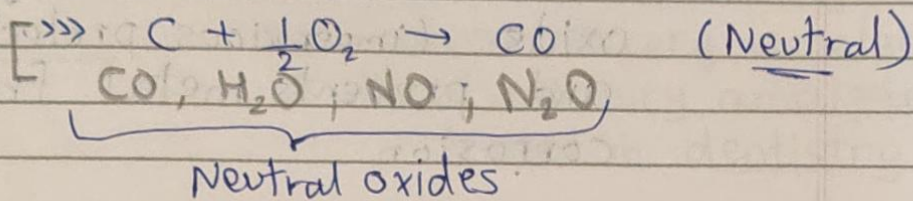 [>>> C + 1/2 O₂ → CO (Neutral)
CO, H₂O, NO, N₂O,
Neutral oxides.